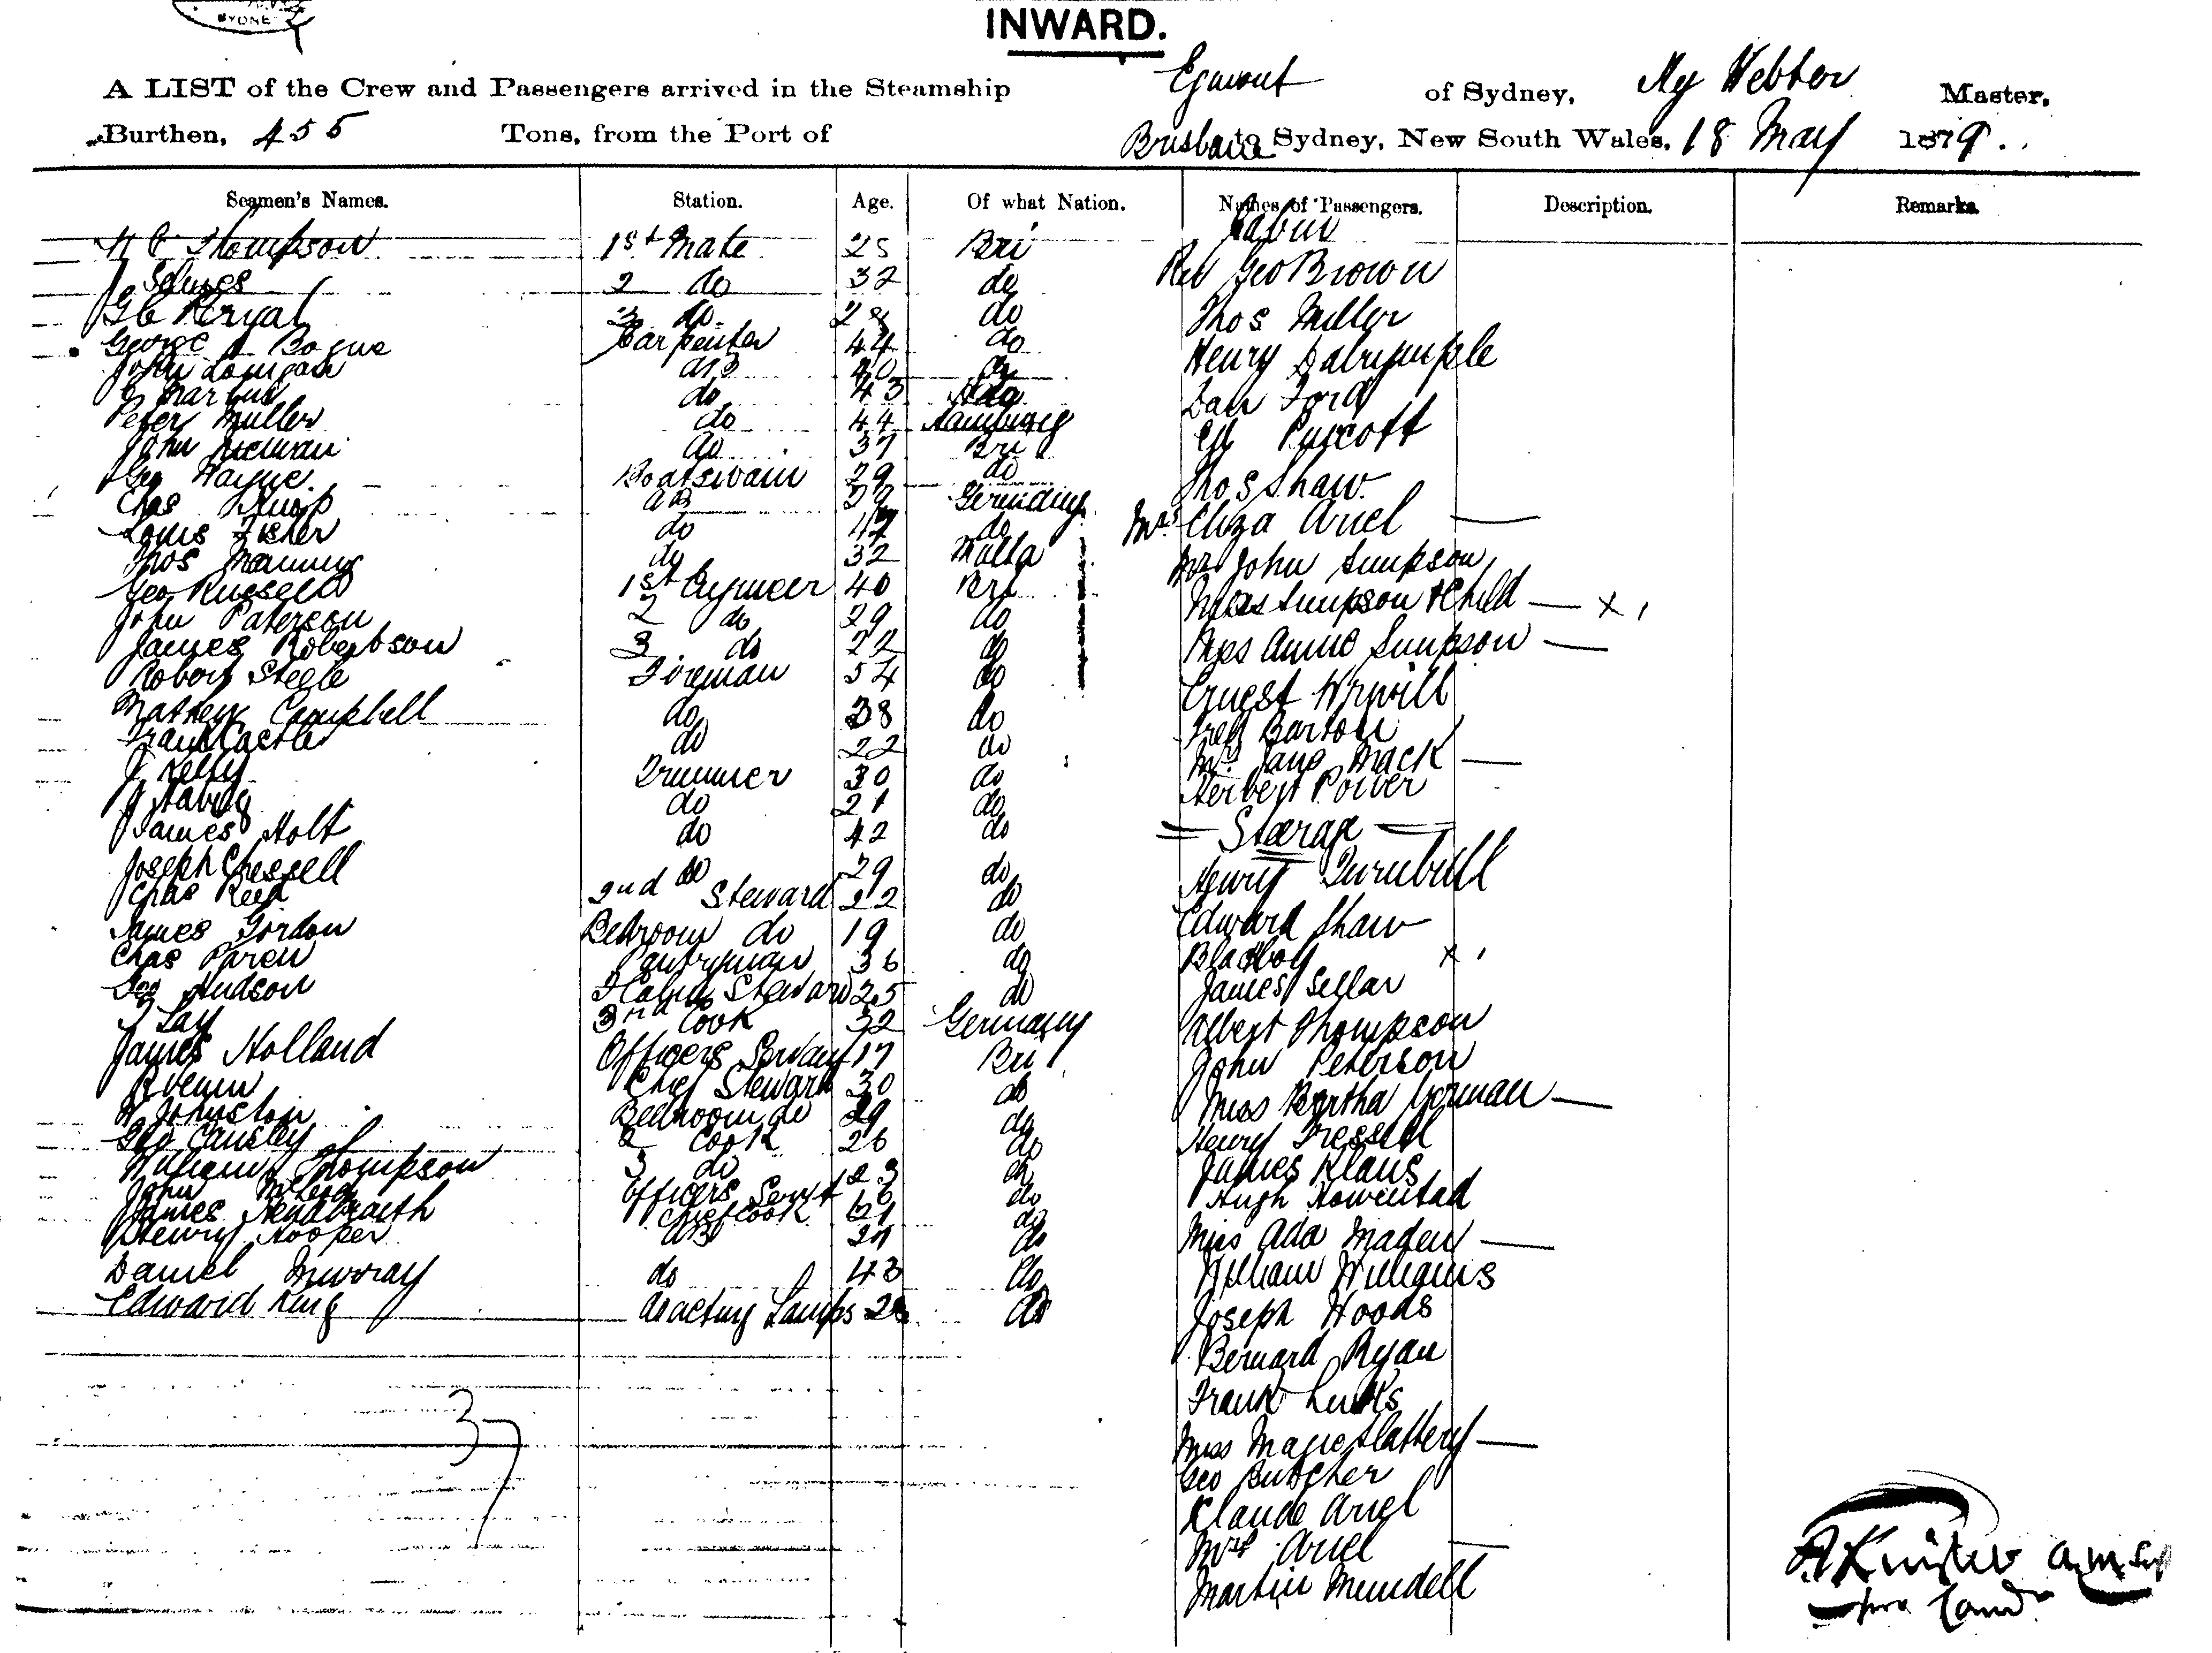 SYDNE
INWARD.
A LIST of the Crew and Passengers arrived in the Steamship Egmont of Sydney, Hy Webber Master,
Burthen, 455 Tons, from the Port of Brisbane to Sydney, New South Wales, 18 May 1879.
Seamen's Names. Station. Age. Of what Nation. Names of Passengers. Description. Remarks
Cabin
Thompson 1st Mate 25 Bri
Rev Geo Brown
2 do 32 do
3 do do
Thos Miller
George Bogue Carpenter 44 do
Henry Dalrymple
John Lonigan AB 40 do
do 43
Dan Ford
Peter Muller do 44 Hamburg
Ed Pyecott
John do 37 Bri
Geo Wayne. Boatswain 29 do
Thos Shaw
Chas AB 39 Germany
Mrs Eliza Ariel
Louis Fisher do 47 do
Thos Manning do 32 Malta
Mr John Simpson
Geo Russell 1st Engineer 40 Bri
Mrs Simpson & Child x
John Paterson 2 do 29 do
James Robertson 3 do 22 do
Miss Annie Simpson
Robert Steele Fireman 54 do
Ernest Wrivill
Mathew Campbell do 38 do
Fred Barton
Frank Castle do 22 do
Mrs Jane Mack
J Kelly Trimmer 30 do
Herbert Power
do 21 do
James Holt do 42 do
Steerage
Joseph Chessell do 29 do
Henry Turnbull
Chas Reed 2nd Steward 22 do
James Gordon Bedroom do 19 do
Edward Shaw
Chas Paren Pantryman 36 do
Blackboy x
Geo Hudson Steward 25 do
James Sellar
J Lay 3rd Cook 32 Germany
Albert Thompson
James Holland Officers Servant 17 Bri
John Peterson
Chief Steward 30 do
Miss Bertha Gorman
W Johnston Bedroom do 29 do
Henry Tressell
Geo Cansley 2 Cook 26 do
James Klaus
William Thompson 3 do 23 do
Hugh
John McLeod Officers Servt 16 do
James Chief Cook do
Miss Ada Maden
Henry Hooper AB do
William Williams
Daniel Murray do 43 do
Joseph Woods
Edward King do acting Lamps do
Bernard Ryan
37
Frank
Miss Slattery
Geo Butcher
Klaude Ariel
Mrs Ariel
Martin Mundell